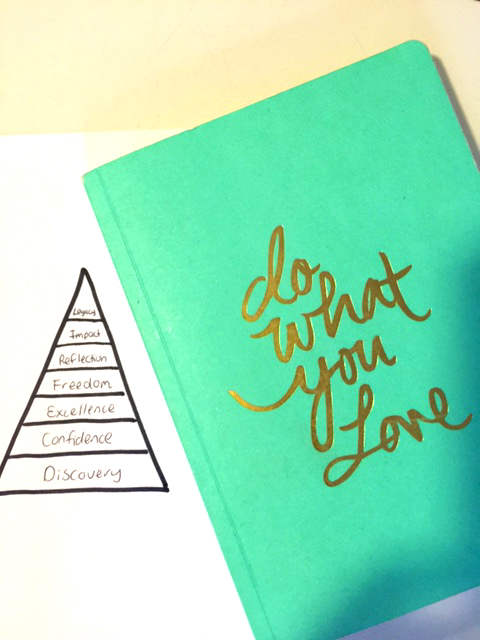 Legacy
Impact
Reflection
Freedom
Excellence
Confidence
Discovery
do
what
you
Love